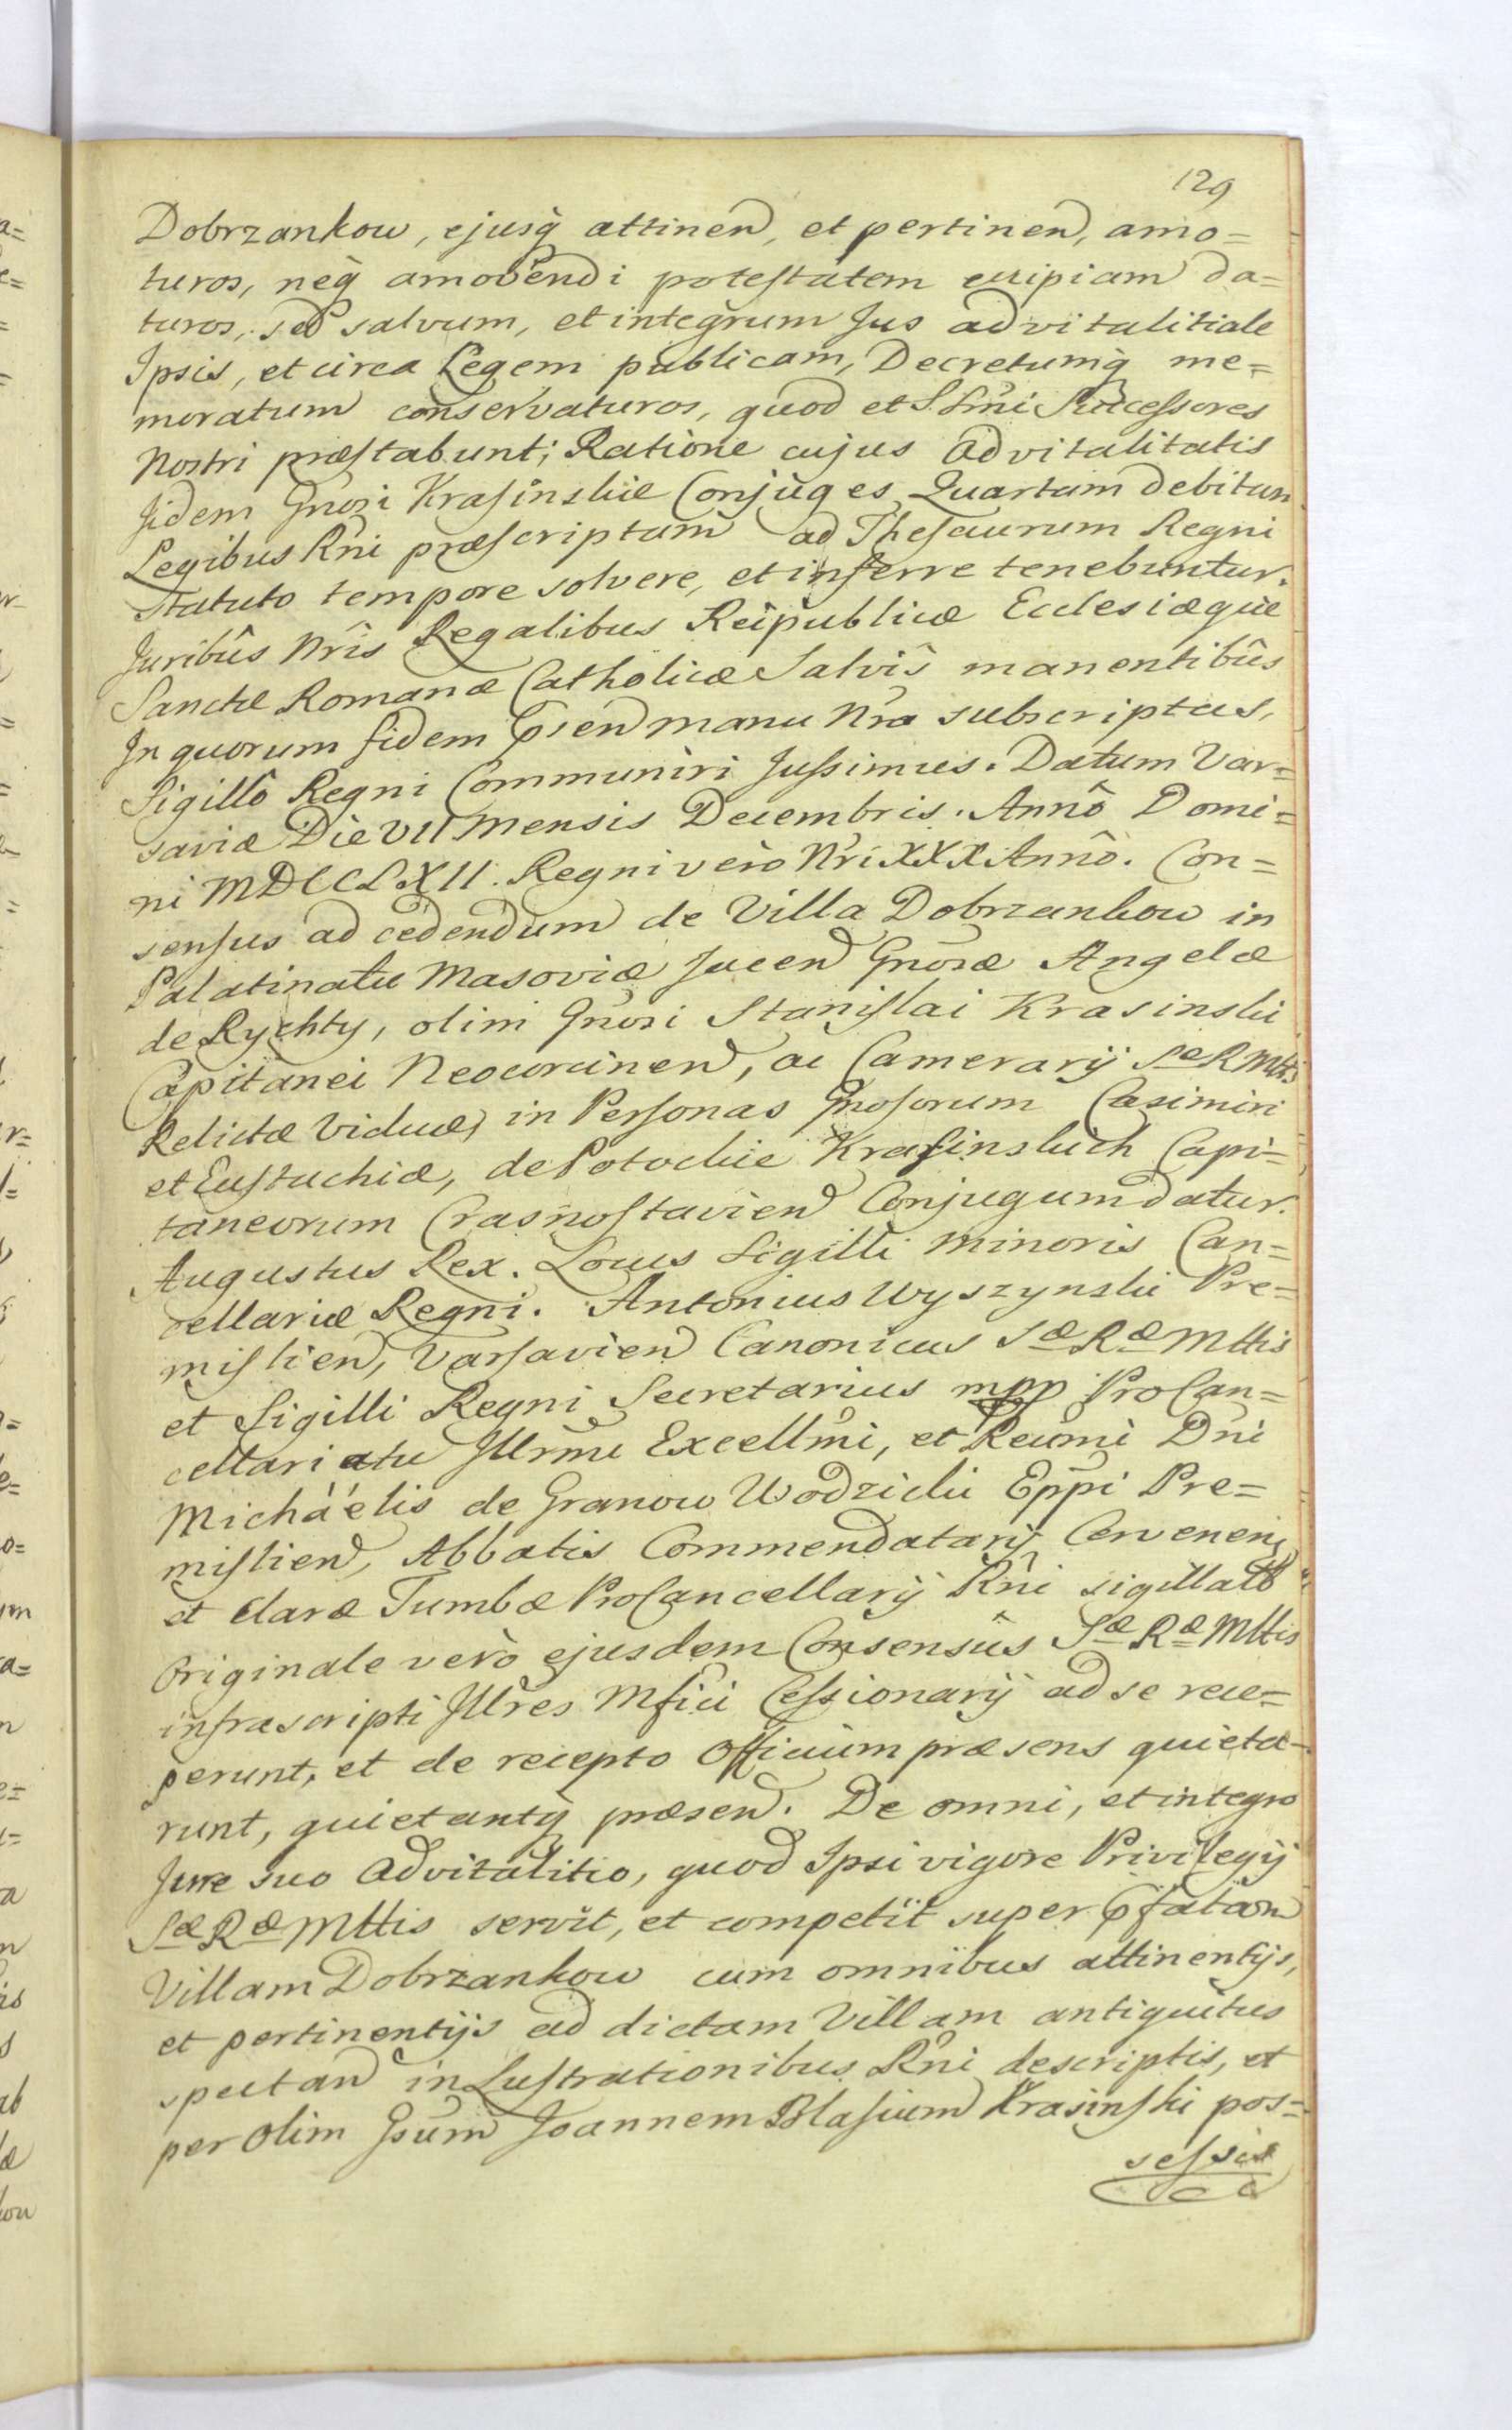 129
Dobrzankow, ejusq̀ attinen, et pertinen, amo=
turos, neq̀ amovendi potestatem cuipiam da=
turos, sed salvum, et integrum Jus advitalitiale
Ipsis, et circa Legem publicam, Decretumq̀ me=
moratum conservaturos, quod et S.Smi Successores
Nostri præstabunt; Ratione cujus Advitalitatis
Iidem Gnosi Krasinskie Conjuges Quartam debitam
Legibus Rni præscriptam ad Thesaurum Regni
statuto tempore solvere, et inferre tenebuntur.
Juribûs Nrîs Regalibus Reipublicæ Ecclesiæque
Sanctæ Romanæ Catholicæ Salvîs manentibûs
In quorum fidem Psen manu Nra subscriptas,
Sigillô Regni Communiri Jussimus. Datum Var=
saviæ Die VII Mensis Decembris. Annô Domi=
ni MDCCLXII. Regni vero Nri XXX Annô. Con=
sensus ad cedendum de Villa Dobrzankow in
Palatinatu Masoviæ Jacen Gnosæ Angelæ
de Rychty, olim Gnosi Stanislai Krasinski
Capitanei Neocorcinen, ac Camerarij Sæ R Mttis
Relictæ Viduæ, in Personas Gnosorum Casimiri
et Eustachiæ, de Potockie Krasinskich Capi=
taneorum Crasnostavien Conjugum datur.
Augustus Rex. Locus Sigilli Minoris Can=
cellariæ Regni. Antonius Wyszynski Pre=
mislien, Varsavien Canonicus Sæ Ræ Mttis
et Sigilli Regni Secretarius mpp ProCan=
cellariatu Illrmi Excellmi, et Reumi Dni
Michaélis de Granow Wodzicki Eppi Pre=
mislien, Abbatis Commendatarij Cervenen,
et Claræ Tumbæ ProCancellarij Rni sigillato
Originale verò ejusdem Consensûs Sæ Ræ Mttis
infrascripti Illres Mfici Cessionarij ad se rece=
perunt, et de recepto Officium præsens quieta=
runt, quietantq̀ præsen. De omni, et integro
Jure suo Advitalitio, quod Ipsi vigore Privilegij
Sæ Ræ Mttis servit, et competit super Pfatam
Villam Dobrzankow cum omnibus attinentijs,
et pertinentijs ad dictam Villam antiquitus
spectan in Lustrationibus Rni descriptis, et
per olim Gsum Joannem Blasium Krasinski pos=
sessis